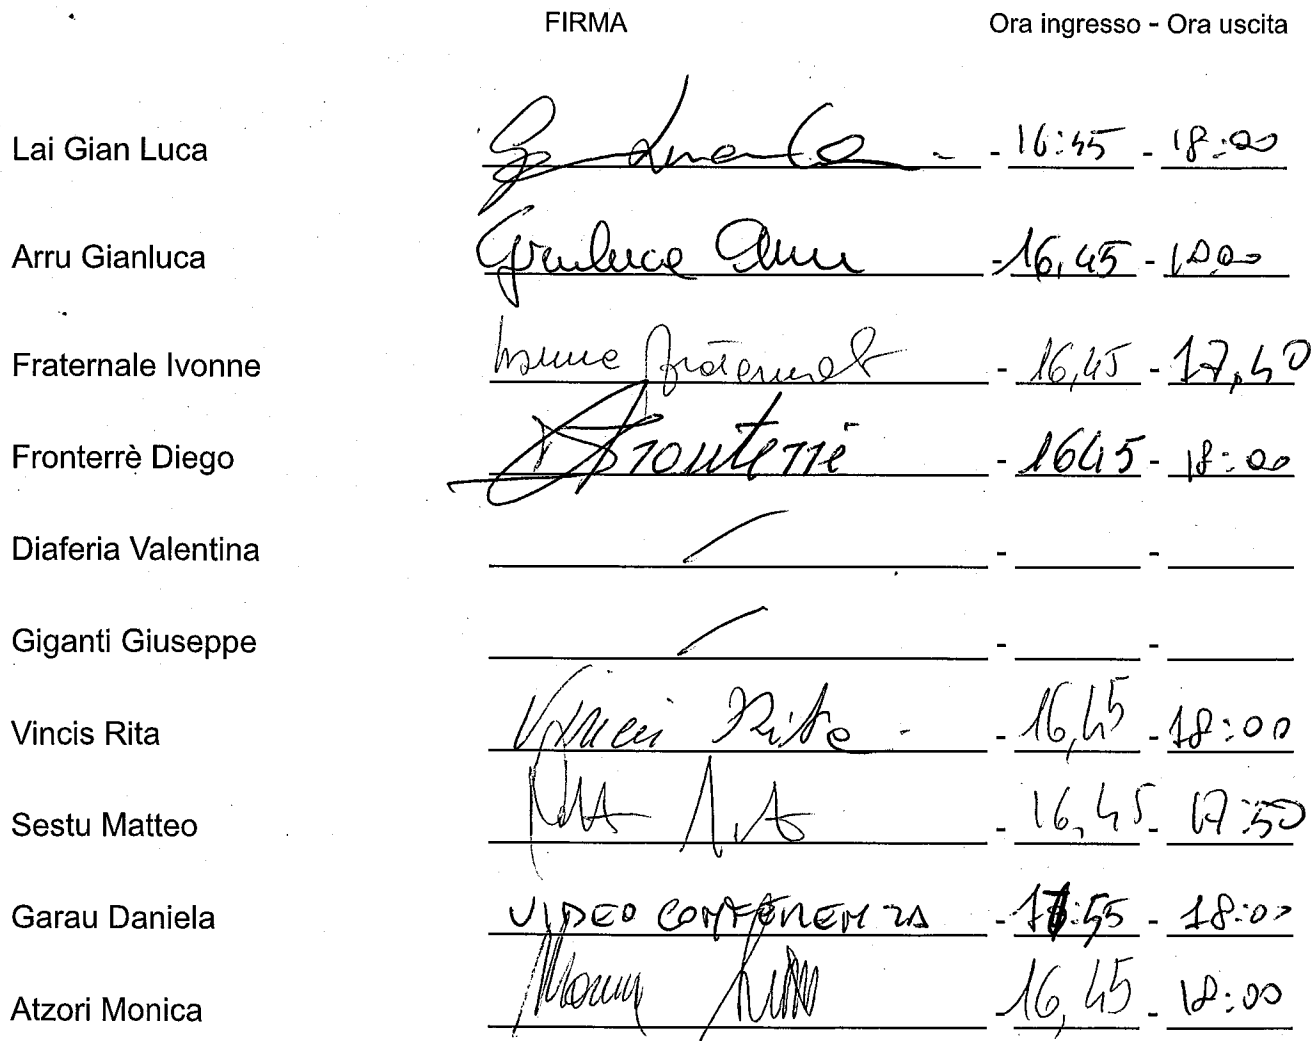 FIRMA Ora ingresso - Ora uscita
Lai Gian Luca - 16:45 - 18:00
Arru Gianluca Gianluca Arru - 16,45 - 18,00
Fraternale Ivonne Ivonne Fraternale - 16,45 - 17,40
Fronterrè Diego Fronterrè - 1645 - 18:00
Diaferia Valentina - -
Giganti Giuseppe - -
Vincis Rita Vincis Rita - 16,45 - 18:00
Sestu Matteo - 16,45 - 17:50
Garau Daniela VIDEO CONFERENZA - :55 - 18:00
Atzori Monica - 16,45 - 18:00